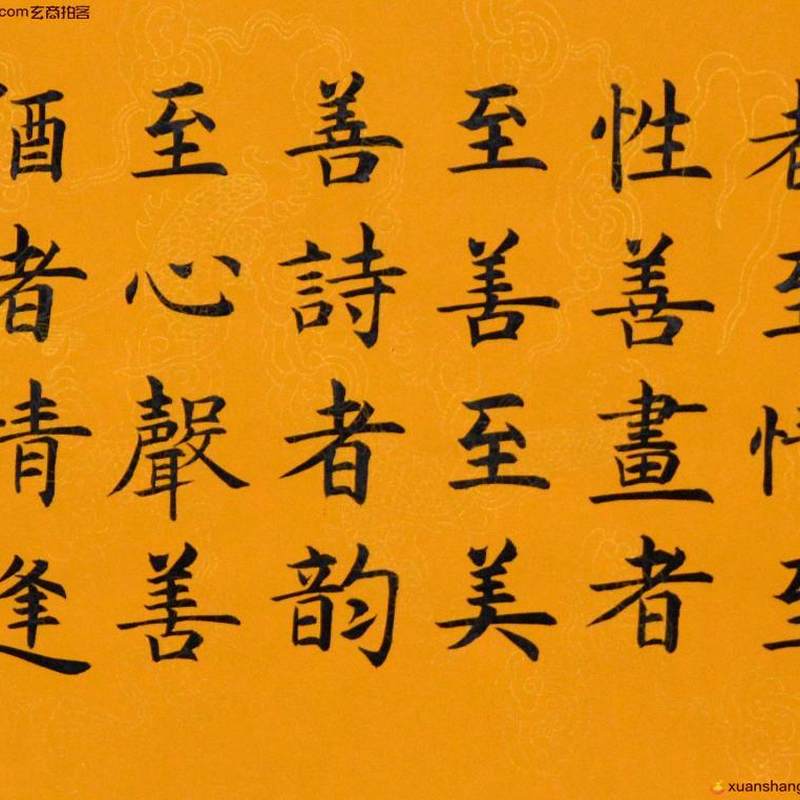 com玄商拍客
者至情至
性善畫者
至善至美
善詩者韵
至心聲善
酒者情逢
xuanshang